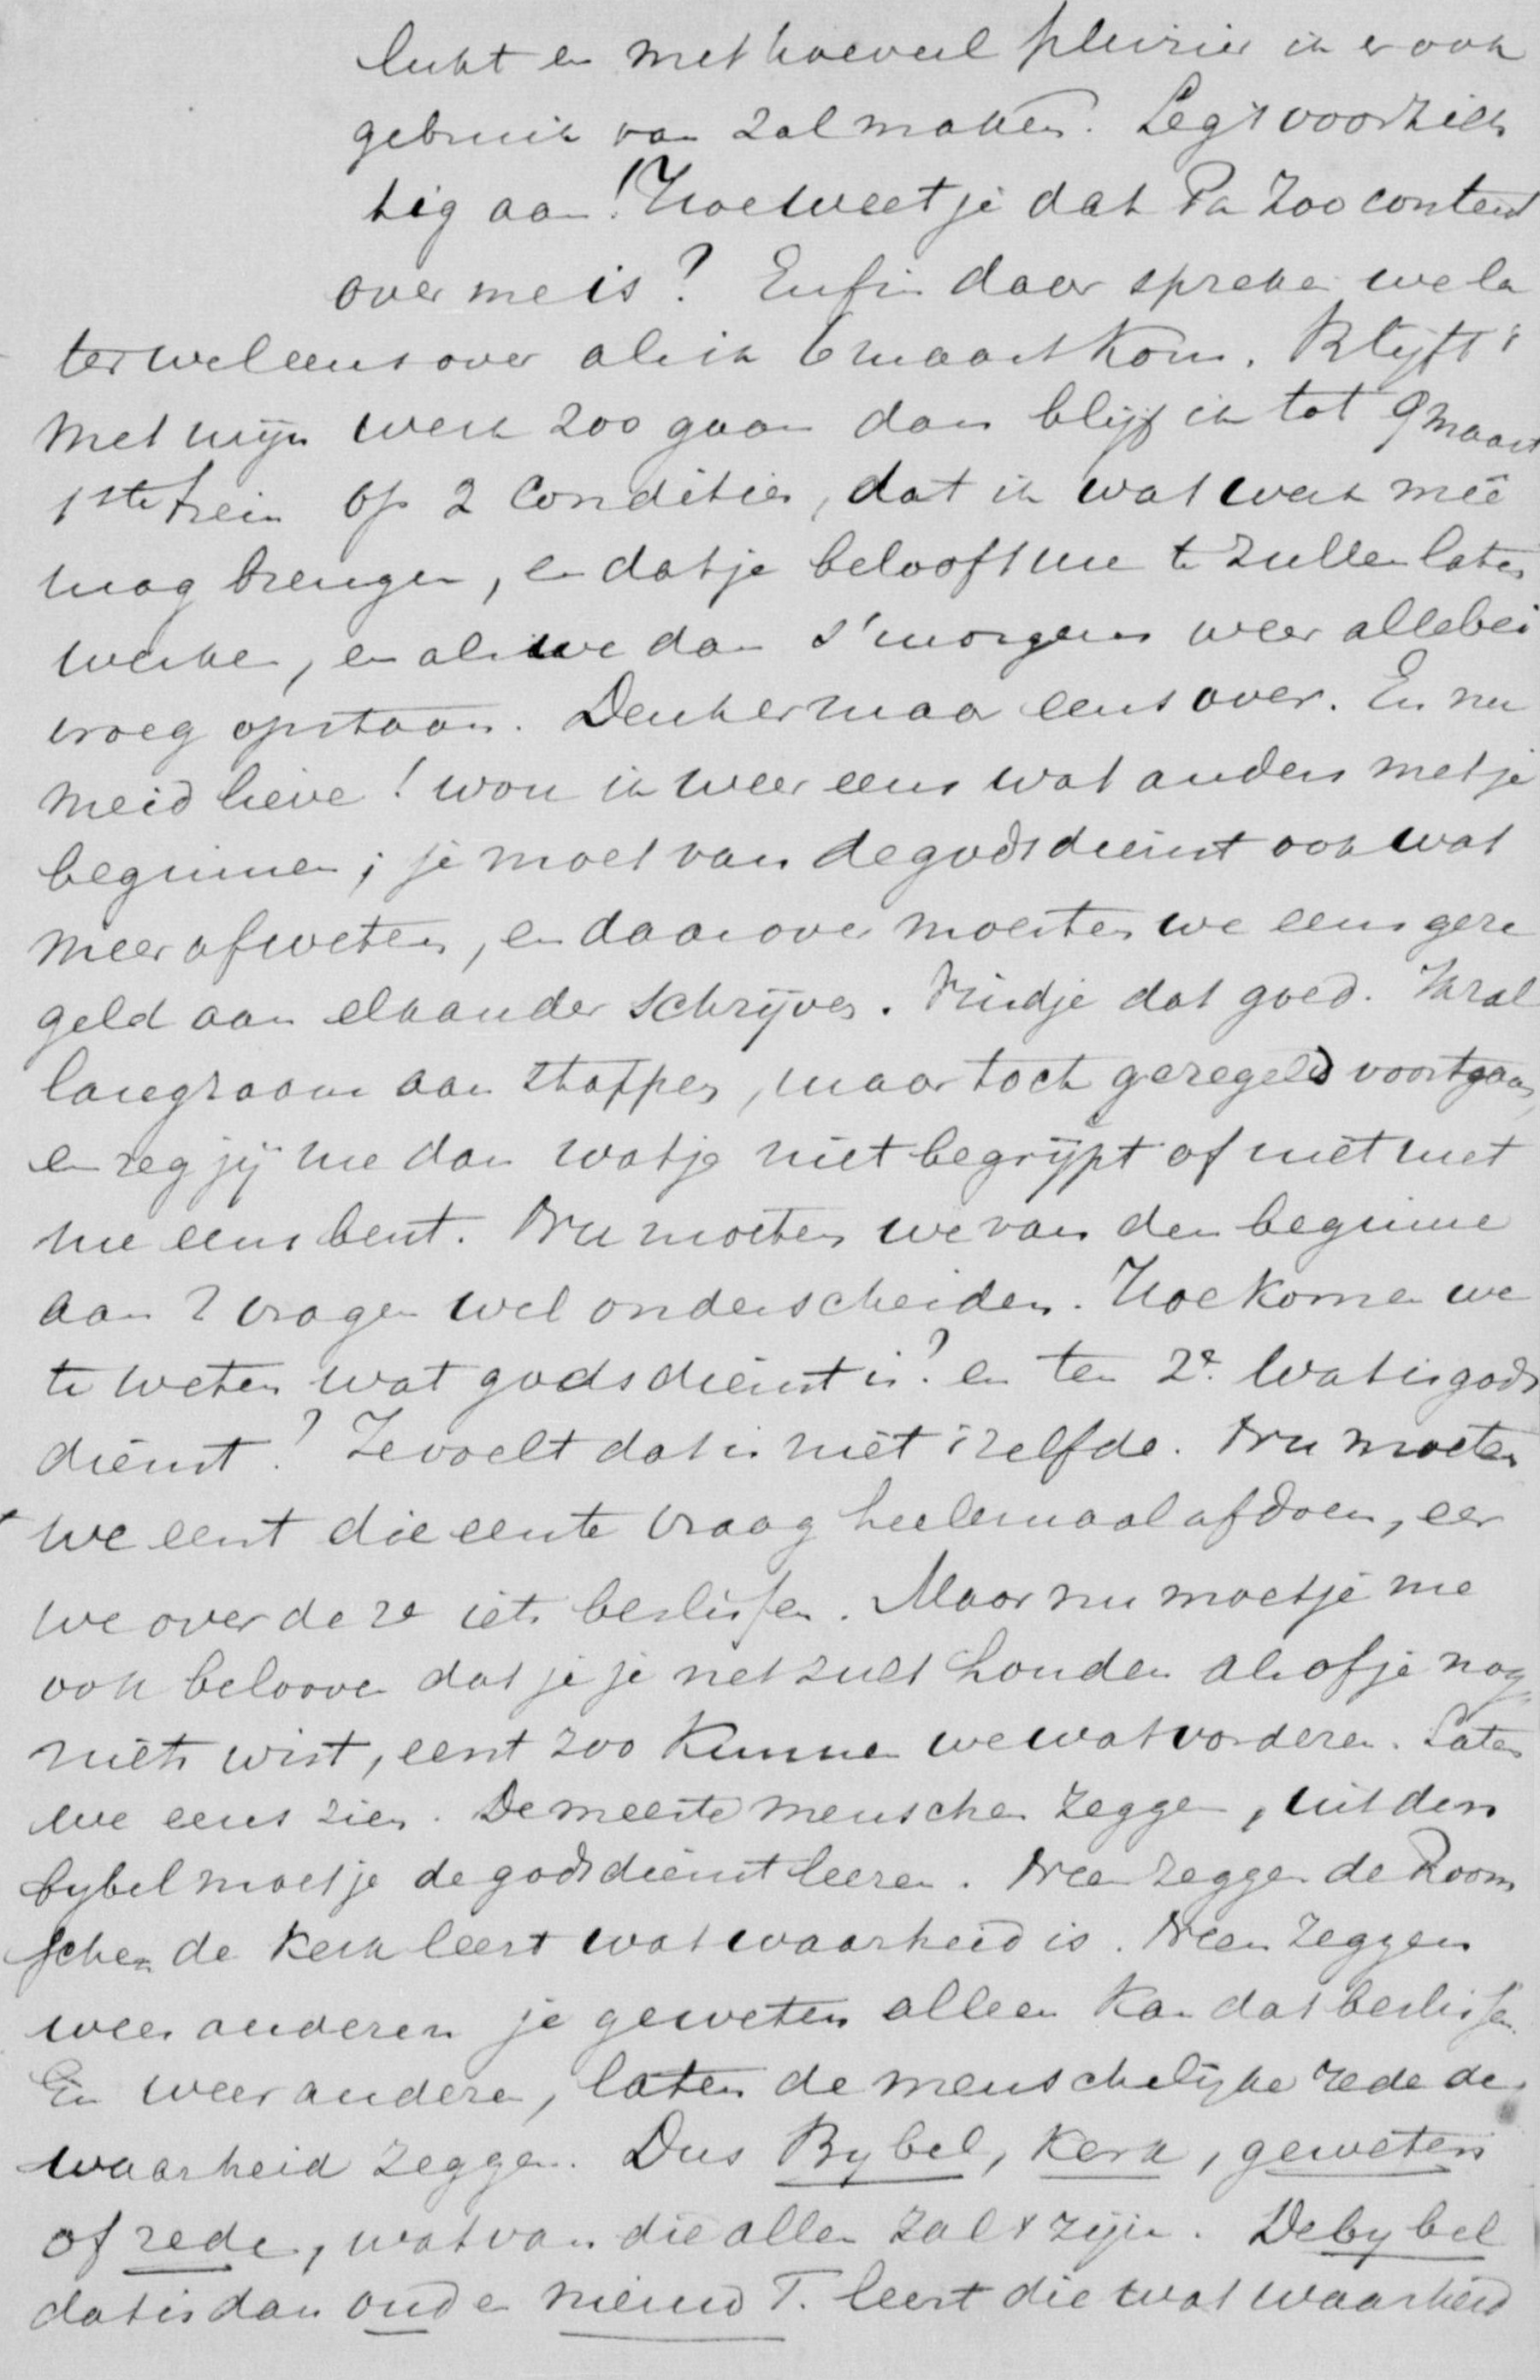 lukt en met hoeveel pleizier ik er ook
gebruik van zal maken. Leg 't voorzich
tig aan! Hoe weet je dat Pa zoo content
over me is? Enfin daar spreken we la
ter wel eens over als ik 6 maart kom. Blijft 't
met mijn werk zoo gaan dan blijf ik tot 9 maart
1ste trein op 2 condities, dat ik wat werk meê
mag brengen, en dat je belooft me te zullen laten
werken, en als we dan s'morgens weer allebei
vroeg opstaan. Denk er maar eens over. En nu
meid lieve! wou ik weer eens wat anders met je
beginnen; je moet van de godsdienst ook wat
meer afweten, en daarover moesten we eens gere
geld aan elkander schrijven. Vind je dat goed. Ik zal
langzaam aan stappen, maar toch geregeld voortgaan,
en zeg jij me dan wat je niet begrijpt of niet met
me eens bent. Nu moeten we van den beginne
aan 2 vragen wel onderscheiden. Hoe komen we
te weten wat godsdienst is? en ten 2e. Wat is gods
dienst? Je voelt dat is niet 't zelfde. Nu moeten
we eerst die eerste vraag heelemaal afdoen, eer
we over de 2e iets beslissen. Maar nu moet je me
ook beloven dat je je net zult houden alsof je nog
niets wist, eerst zoo kunnen we wat vorderen. Laten
we eens zien. De meeste menschen zeggen, uit den
bybel moet je de godsdienst leeren. Neen zeggen de Room
schen de kerk leert wat waarheid is. Neen zeggen
weer anderen je geweten alleen kan dat beslissen.
En weer anderen, laten de menschelijke rede de
waarheid zeggen. Dus Bybel, Kerk, geweten
of rede, wat van die allen zal 't zijn. De bybel
dat is dan oud en nieuw T. leert die wat waarheid